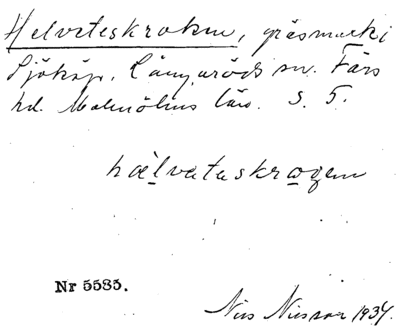 Helveteskroken, gräsmark i
Sjököp. Långaröds sn. Färs
hd. Malmöhus län. S. 5.
hælvetaskrogen
Nr 5585.
Nils Nilsson 1934.